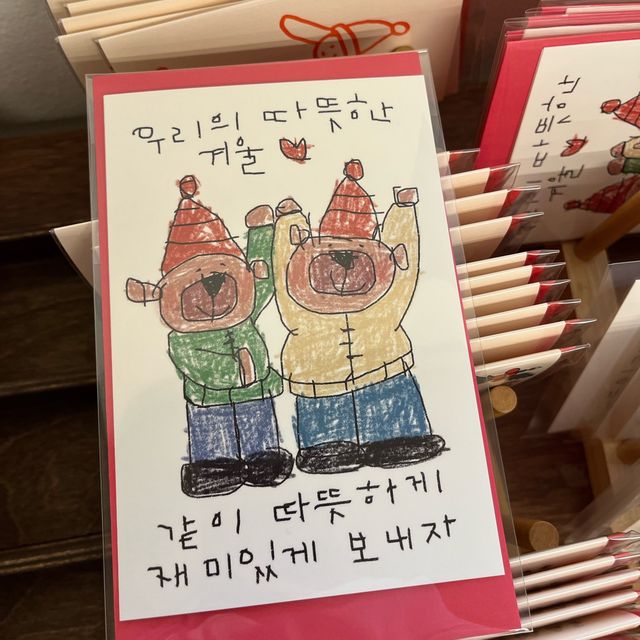 우리의 따뜻한
겨울
같이 따뜻하게
재미있게 보내자